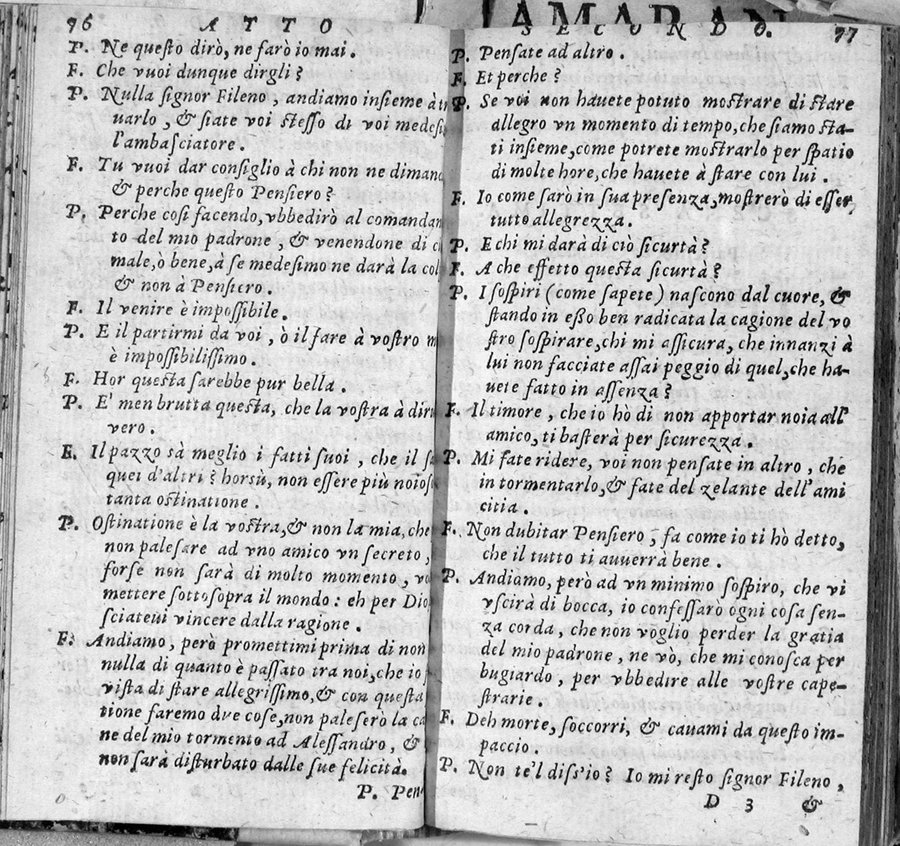 76 ATTO
P. Ne questo dirò, ne farò io mai.
F. Che vuoi dunque dirgli?
P. Nulla signor Fileno, andiamo insieme à tr
uarlo, & siate voi stesso di voi medesi
l'ambasciatore.
F. Tu vuoi dar consiglio à chi non ne dimand
& perche questo Pensiero?
P. Perche cosi facendo, vbbedirò al comandam
to del mio padrone, & venendone di c
male, ò bene, à se medesimo ne darà la col
& non à Pensiero.
F. Il venire è impossibile.
P. E il partirmi da voi, ò il fare à vostro m
è impossibilissimo.
F. Hor questa sarebbe pur bella.
P. E' men brutta questa, che la vostra à dir
vero.
F. Il pazzo sà meglio i fatti suoi, che il sa
quei d'altri? horsù, non essere più noios
tanta ostinatione.
P. Ostinatione è la vostra, & non la mia, che
non palesare ad vno amico vn secreto,
forse non sarà di molto momento, vo
mettere sottosopra il mondo: eh per Dio
sciateui vincere dalla ragione.
F. Andiamo, però promettimi prima di non
nulla di quanto è passato tra noi, che io
vista di stare allegrissimo, & con questa
tione faremo due cose, non paleserò la ca
ne del mio tormento ad Alessandro, &
non sarà disturbato dalle sue felicità.
P. Pen
SECONDO. 77
P. Pensate ad altro.
F. Et perche?
P. Se voi non hauete potuto mostrare di stare
allegro vn momento di tempo, che siamo sta-
ti insieme, come potrete mostrarlo per spatio
di molte hore, che hauete à stare con lui.
F. Io come sarò in sua presenza, mostrerò di esser
tutto allegrezza.
P. E chi mi darà di ciò sicurtà?
F. A che effetto questa sicurtà?
P. I sospiri (come sapete) nascono dal cuore, &
stando in esso ben radicata la cagione del vo
stro sospirare, chi mi assicura, che innanzi à
lui non facciate assai peggio di quel, che ha-
uete fatto in assenza?
F. Il timore, che io hò di non apportar noia all'
amico, ti basterà per sicurezza.
P. Mi fate ridere, voi non pensate in altro, che
in tormentarlo, & fate del zelante dell'ami
citia.
F. Non dubitar Pensiero, fa come io ti hò detto,
che il tutto ti auuerrà bene.
P. Andiamo, però ad vn minimo sospiro, che vi
vscirà di bocca, io confessarò ogni cosa sen-
za corda, che non voglio perder la gratia
del mio padrone, ne vò, che mi conosca per
bugiardo, per vbbedire alle vostre cape-
strarie.
F. Deh morte, soccorri, & cauami da questo im-
paccio.
P. Non te'l diss'io? Io mi resto signor Fileno,
D 3 &